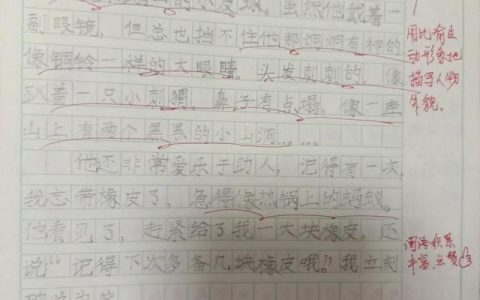 的小皮球。虽然他戴着一
副眼镜，但总也挡不住他那炯炯有神的
像铜铃一样的大眼睛。头发刺刺的，像
趴着一只小刺猬。鼻子有点塌，像一座
山上有两个黑黑的小山洞……
他还非常爱乐于助人，记得有一次，
我忘带橡皮了，急得像热锅上的蚂蚁。
他看见了，赶紧给了我一大块橡皮。还
说“记得下次多备几块橡皮哦!!我立刻
用比喻生
动形象地
描写人物
外貌。
词语积累
丰富,点赞